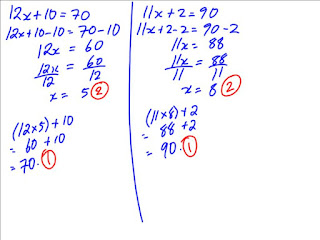 12x+10=70
12x+10-10=70-10
12x = 60
12x/12 = 60/12
x = 5 ②
(12×5)+10
= 60 +10
= 70. ①
11x+2=90
11x+2-2=90-2
11x = 88
11x/11 = 88/11
x = 8 ②
(11×8)+2
= 88 +2
= 90. ①